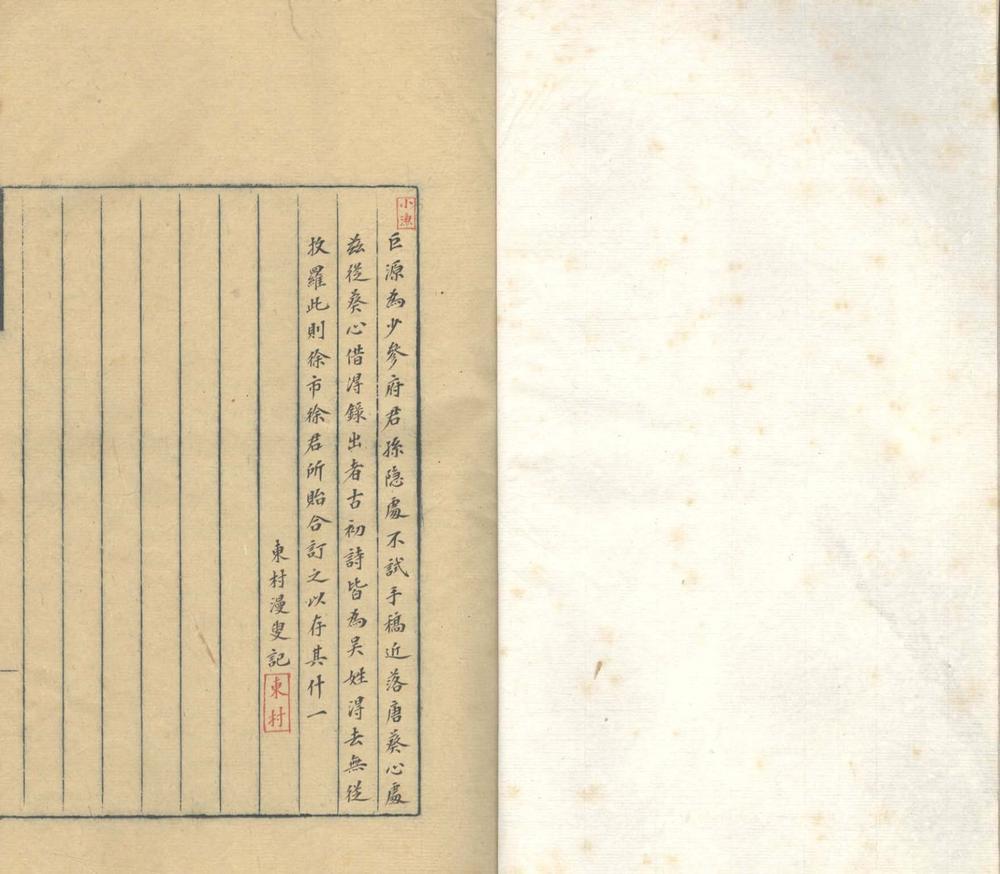 小漁
巨源為少參府君孫隐處不試手稿近落唐葵心處
茲從葵心借得錄出者古初詩皆為吴姓得去無從
收羅此則徐市徐君所貽合訂之以存其什一
東村漫叟記
東村